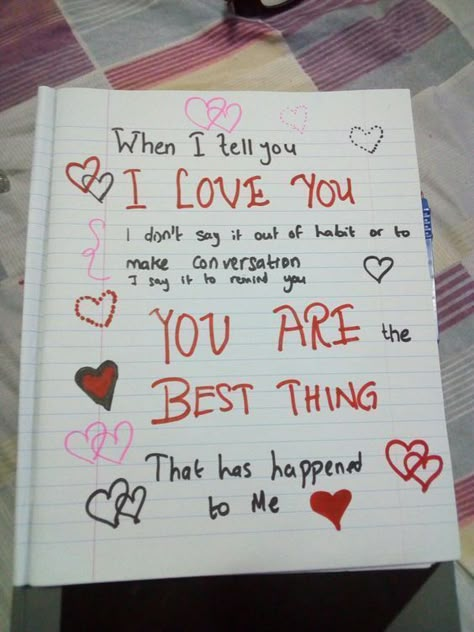 When I tell you
I LOVE YOU
I don't say it out of habit or to
make conversation
I say it to remind you
YOU ARE the
BEST THING
That has happened
to Me